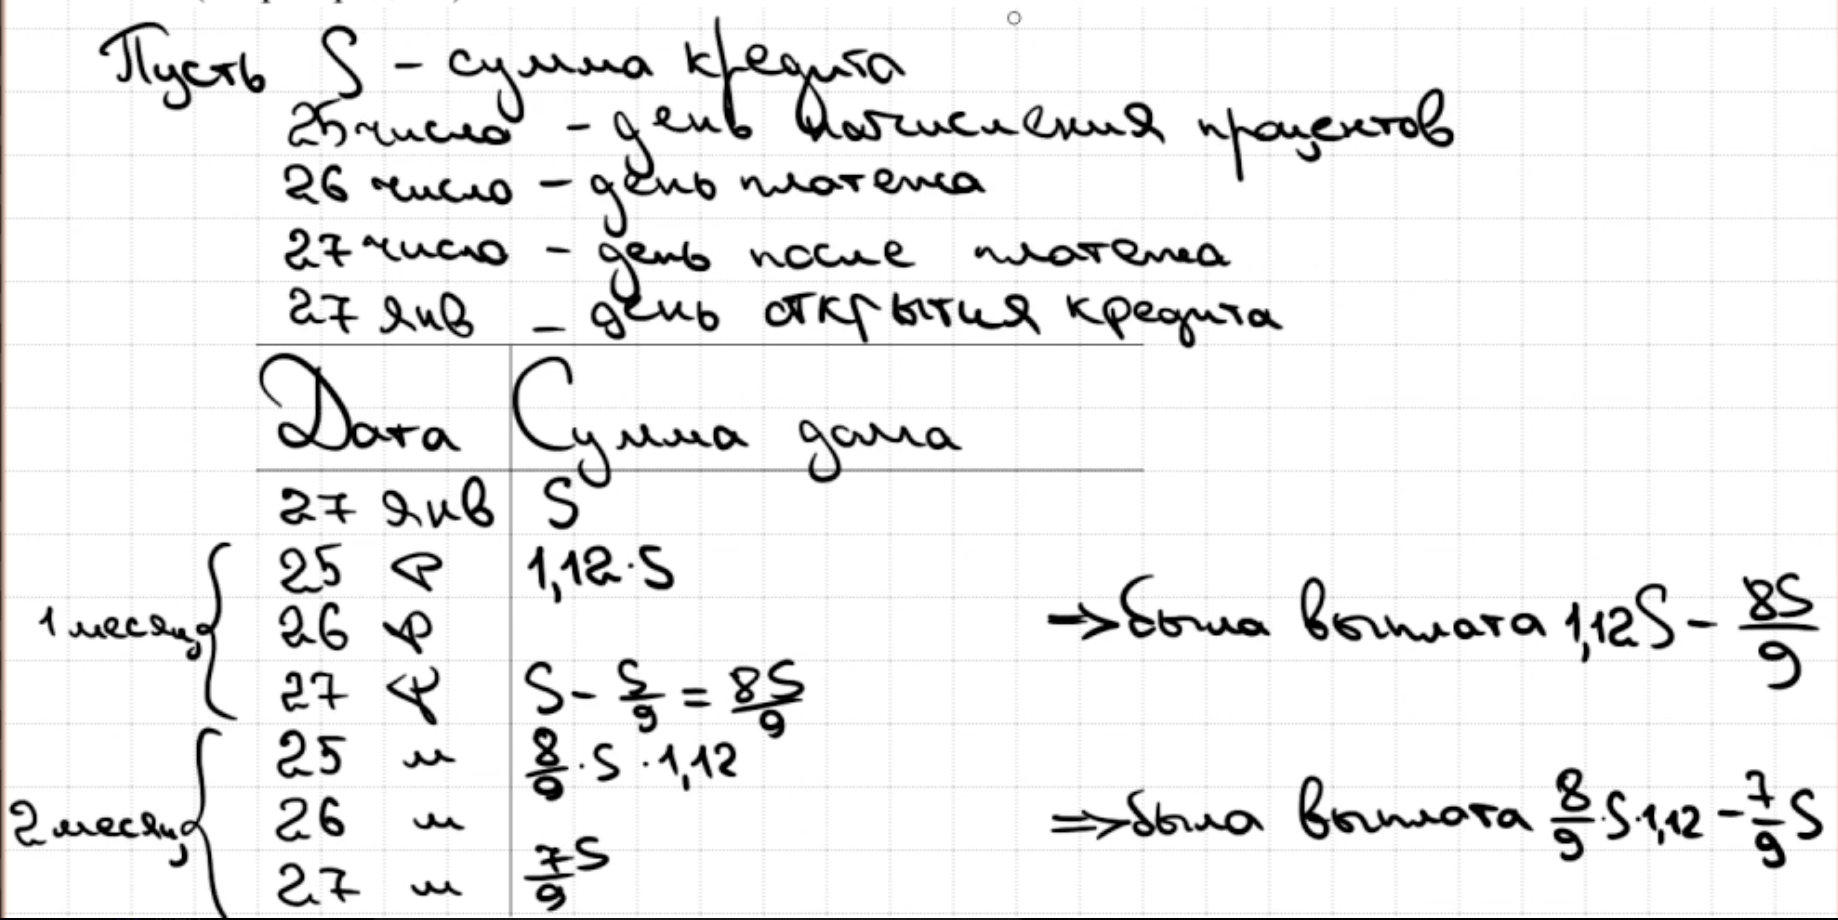 Пусть S - сумма кредита
25 число - день начисления процентов
26 число - день платежа
27 число - день после платежа
27 янв - день открытия кредита
Дата Сумма долга
27 янв S
25 ф 1,12·S
1 месяц 26 ф => была выплата 1,12S - 8S/9
27 ф S - S/9 = 8S/9
25 м 8/9·S·1,12
2 месяц 26 м => была выплата 8/9·S·1,12 - 7/9 S
27 м 7/9 S